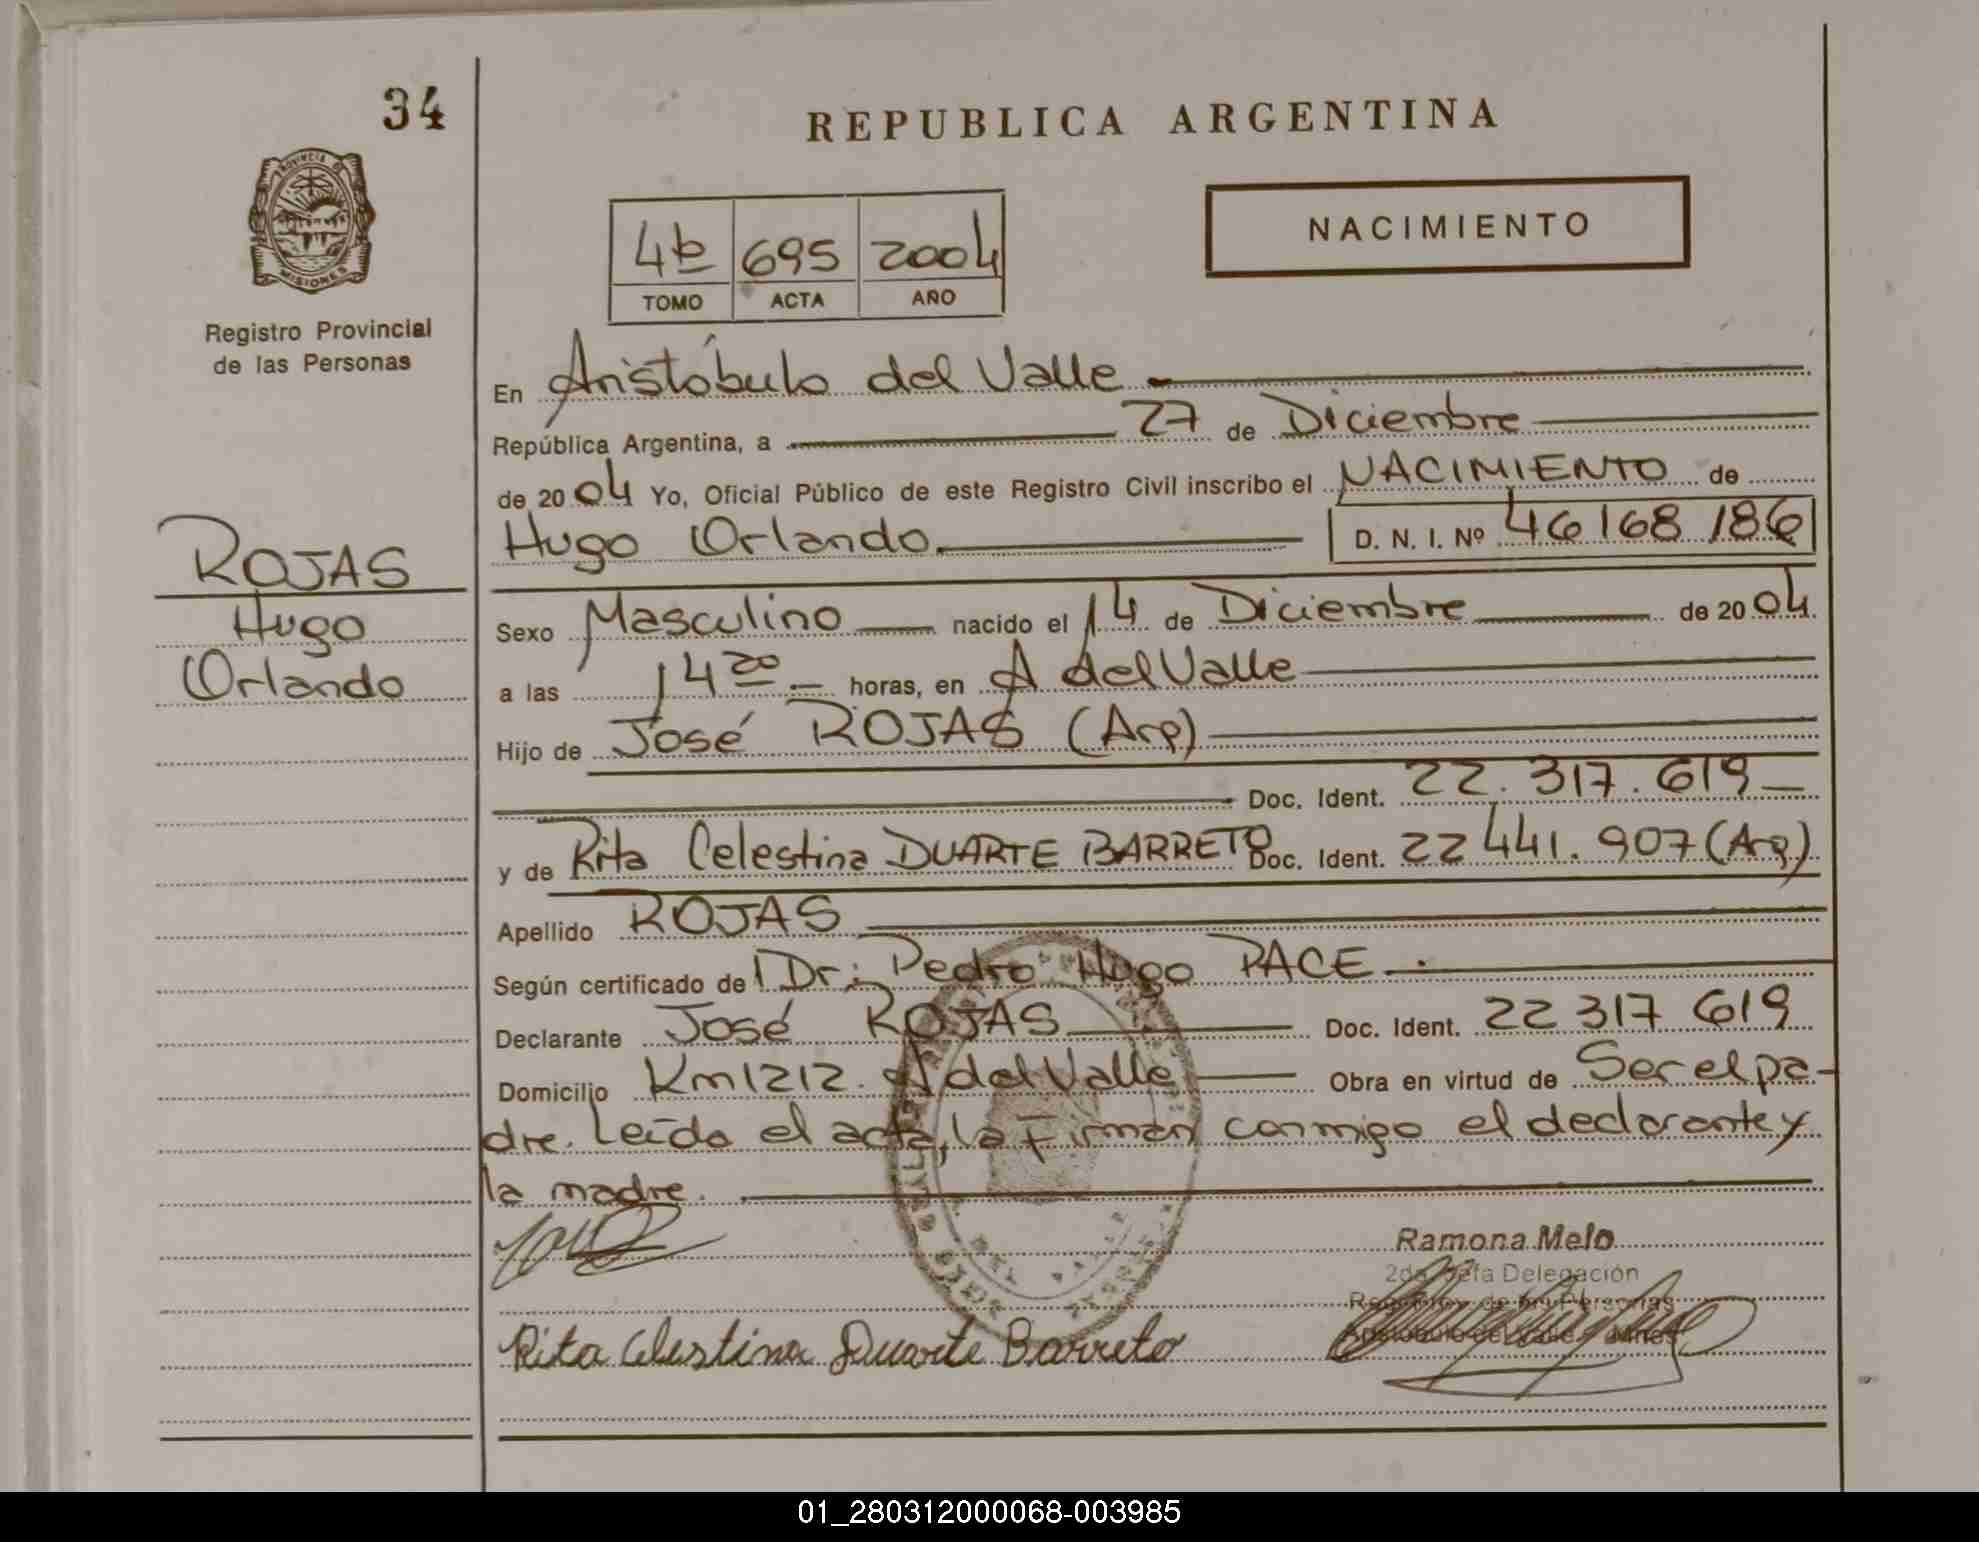 34
REPUBLICA ARGENTINA
PROVINCIA DE
MISIONES
Registro Provincial
de las Personas
NACIMIENTO
4b 695 2004
TOMO ACTA AÑO
En Aristóbulo del Valle
República Argentina, a 27 de Diciembre
de 2004 Yo, Oficial Público de este Registro Civil inscribo el NACIMIENTO de
Hugo Orlando. D. N. I. Nº 46168186
ROJAS
Hugo
Orlando
Sexo Masculino nacido el 14 de Diciembre de 2004.
a las 14 20 horas, en A del Valle
Hijo de José ROJAS (Arg)
Doc. Ident. 22.317.619
y de Rita Celestina DUARTE BARRETO Doc. Ident. 22 441.907 (Arg)
Apellido ROJAS
Según certificado de Dr: Pedro Hugo PACE.
Declarante José ROJAS Doc. Ident. 22 317 619
Domicilio Km1212. A del Valle Obra en virtud de Ser el pa-
dre. Leída el acta, la firman conmigo el declarante y
la madre.
Ramona Melo
2da. Jefa Delegación
Reg. Prov. de las Personas
Aristóbulo del Valle
Rita Celestina Duarte Barreto
DEL VALLE
01_280312000068-003985